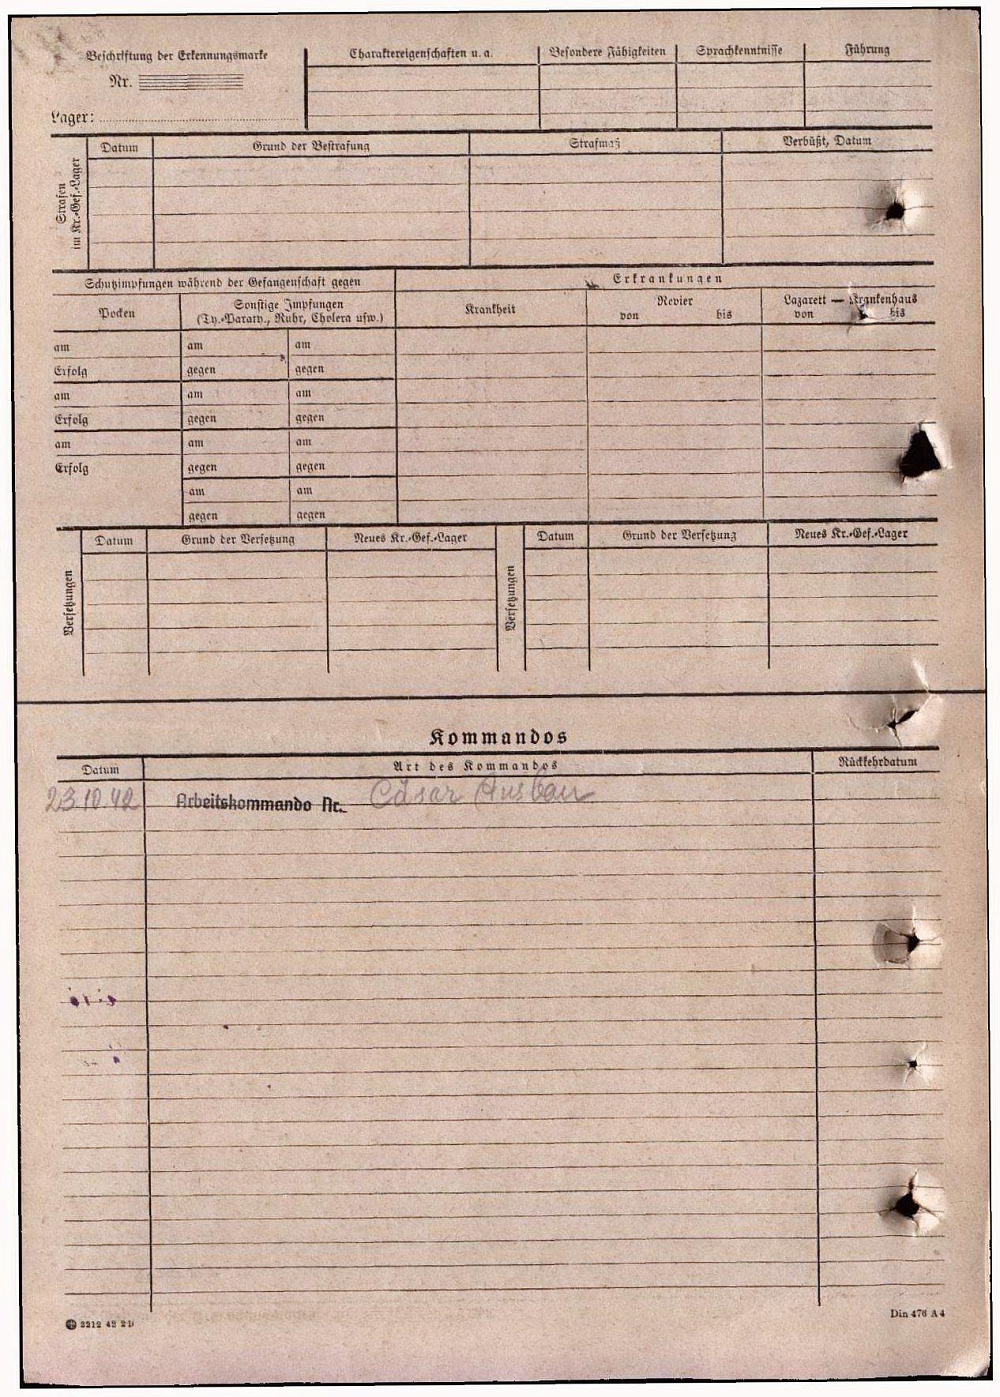 Beschriftung der Erkennungsmarke
Nr.
Lager:
Charaktereigenschaften u. a. Besondere Fähigkeiten Sprachkenntnisse Führung
Strafen im Kr.-Gef.-Lager
Datum Grund der Bestrafung Strafmaß Verbüßt, Datum
Schutzimpfungen während der Gefangenschaft gegen Erkrankungen
Pocken Sonstige Impfungen Krankheit Revier Lazarett — Krankenhaus
(Ty.-Paraty., Ruhr, Cholera usw.) von bis von bis
am am am
Erfolg gegen gegen
am am am
Erfolg gegen gegen
am am am
Erfolg gegen gegen
am am
gegen gegen
Versetzungen
Datum Grund der Versetzung Neues Kr.-Gef.-Lager
Versetzungen
Datum Grund der Versetzung Neues Kr.-Gef.-Lager
Kommandos
Datum Art des Kommandos Rückkehrdatum
23.10.42 Arbeitskommando Nr. Cäsar Ausbau
Din 476 A4